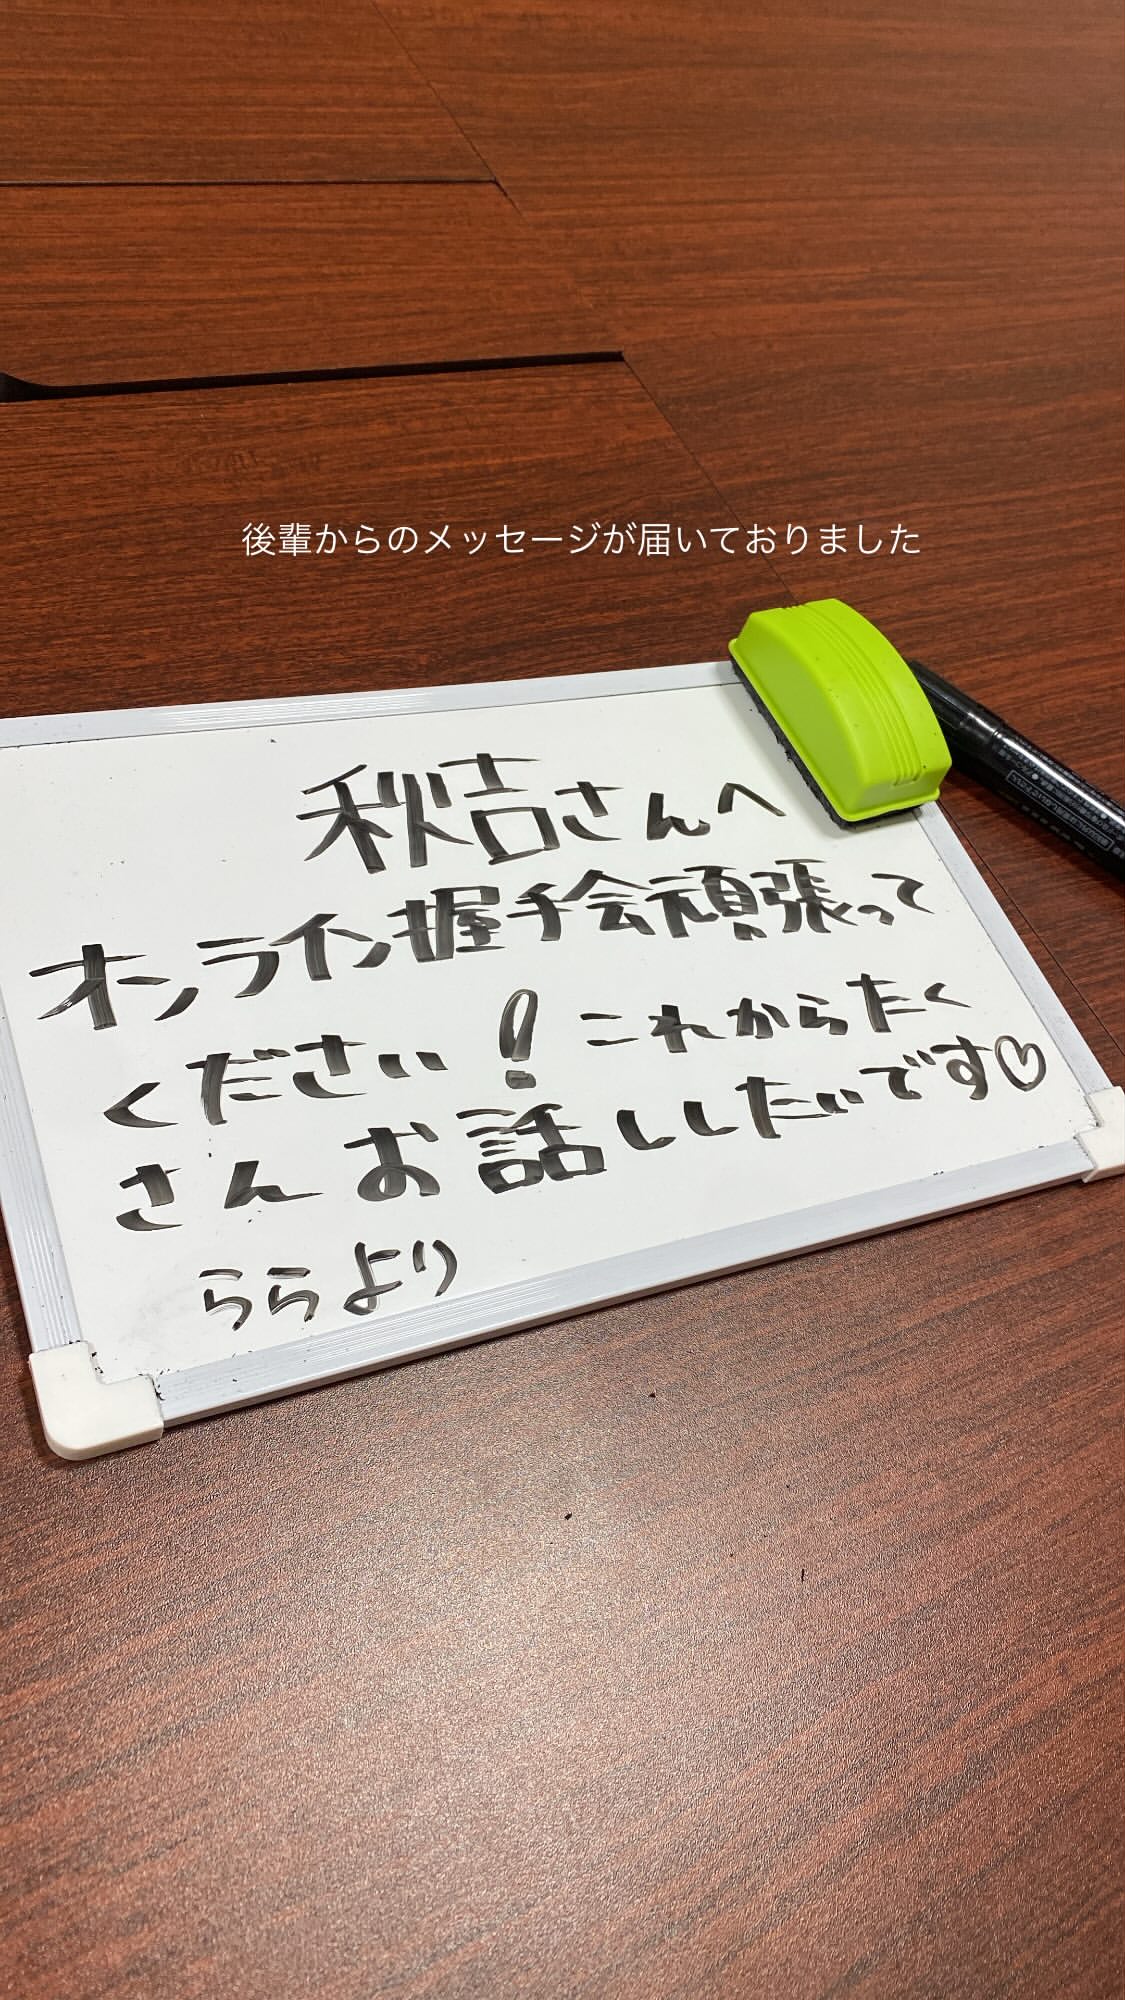 後輩からのメッセージが届いておりました
秋吉さんへ
オンライン握手会頑張って
ください!これからたく
さんお話ししたいです♡
ららより